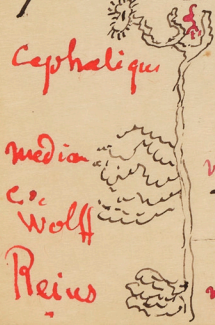 Cephalique
median
C. de
Wolff
Reins